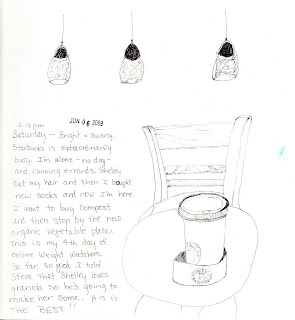 2:15pm
JUN 06 2009
Saturday - Bright & Sunny.
Starbucks is extraordinarily
busy. I'm alone - no day -
and running errands. Shelley
cut my hair and then I bought
new socks and now I'm here.
I want to buy compost
and then stop by the new
organic vegetable place.
This is my 4th day of
online Weight Watchers.
So far, so good. I told
Steve that Shelley loves
granola so he's going to
make her some. This is
THE BEST!!